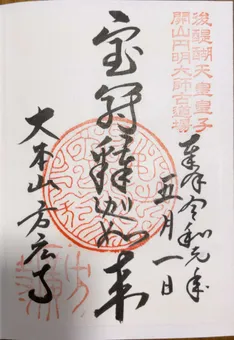 後醍醐天皇皇子
開山円明大師古道場
奉拝 令和元年
五月一日
宝冠釋迦如来
大本山方広寺